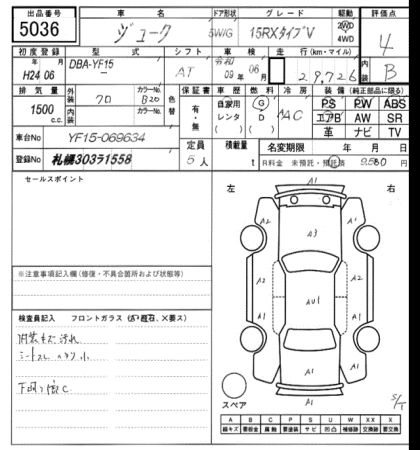 出品番号 車名 ドア形状 グレード 駆動 評価点
5036 ジューク 5W/G 15RXタイプV 2WD 4WD 4
初度登録 型式 シフト 車検 走行(km・マイル) 内装
H24年 06月 DBA-YF15 AT 令和 09年 06月 29,726 B
排気量 外装 カラーNo. 色替 保証書 車歴 燃料 冷房 装備(純正部品に限る)
1500c.c. 70 B20 有・無 自家用 レンタ G D AAC PS PW ABS
内装 カラーNo. エアB AW SR
革 ナビ TV
車台No YF15-069634 定員 積載量 名変期限 年 月 日
登録No 札幌303ラ1558 5人 t R料金 未預託・預託済 円
セールスポイント
左 右
A1
A2 A1
A3
A2 A1 A2
AU1
A1 A1
A1
スペア S/T
※注意事項記入欄(修復・不具合箇所および状態等)
検査員記入 フロントガラス
内装キズ汚れ
シートスレ ヘタリ小
下回り錆C
A B C P S U W XX X
線キズ 要板金 腐蝕 要塗装 サビ 凹凸 補修跡 交換済 要交換